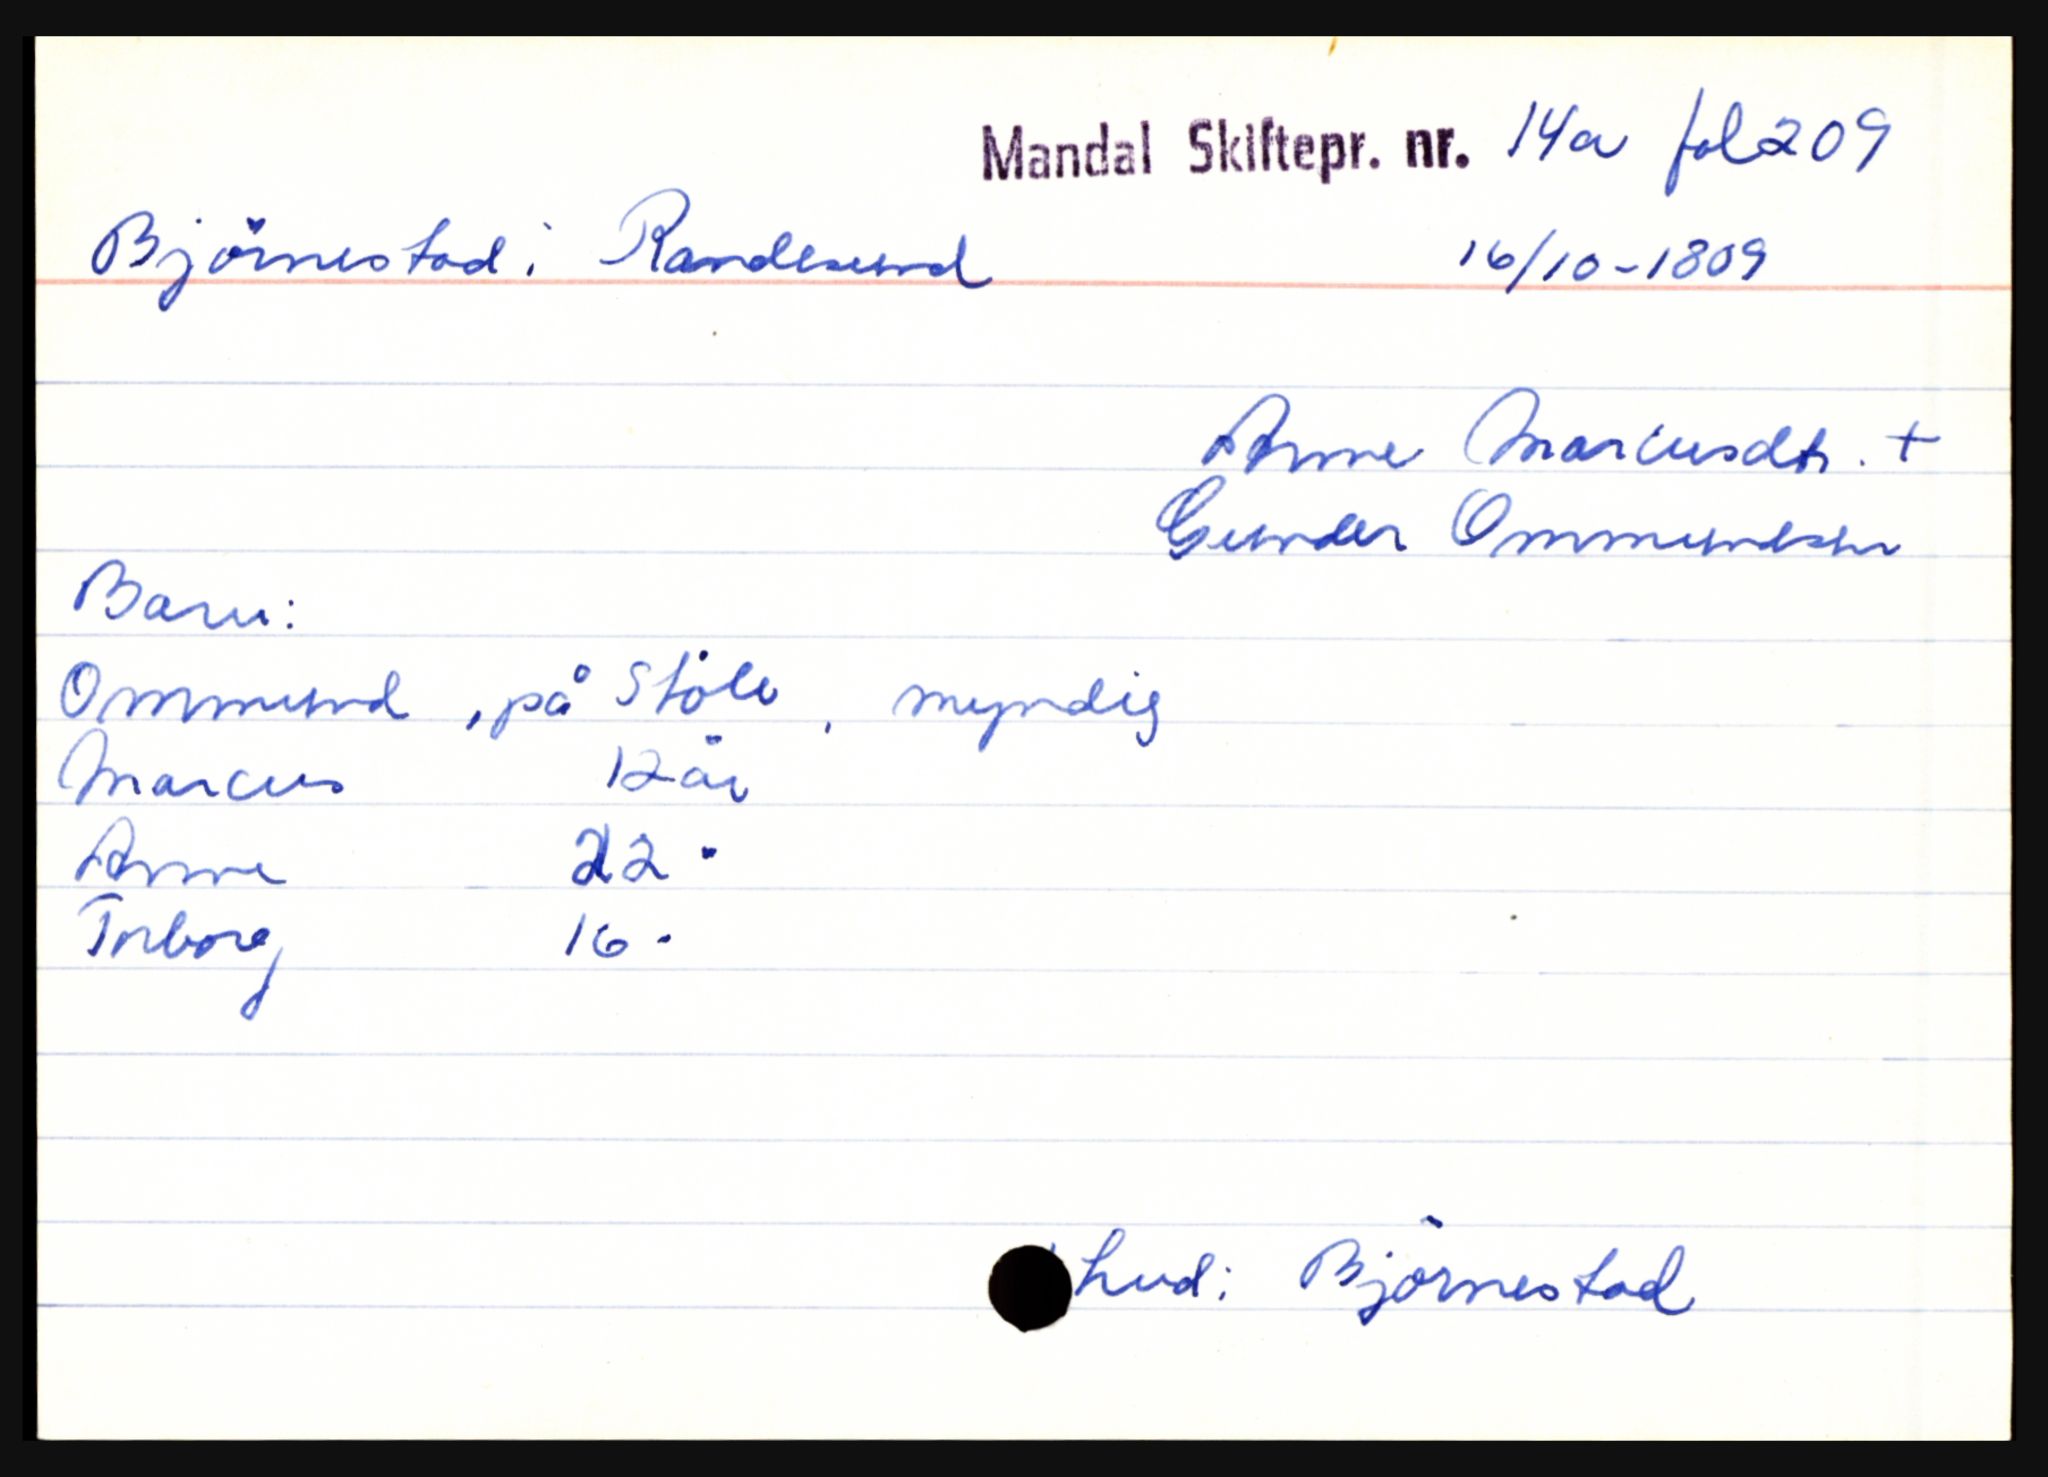 Mandal Skiftepr. nr. 14a fol 209
Björnestad i Randesund 16/10-1809
Anne Marcusdtr. +
Gunder Ommundsen
Barn:
Ommund, på Stöle, myndig
Marcus 12 år
Anne 22 "
Torborg 16 "
hvd: Björnestad